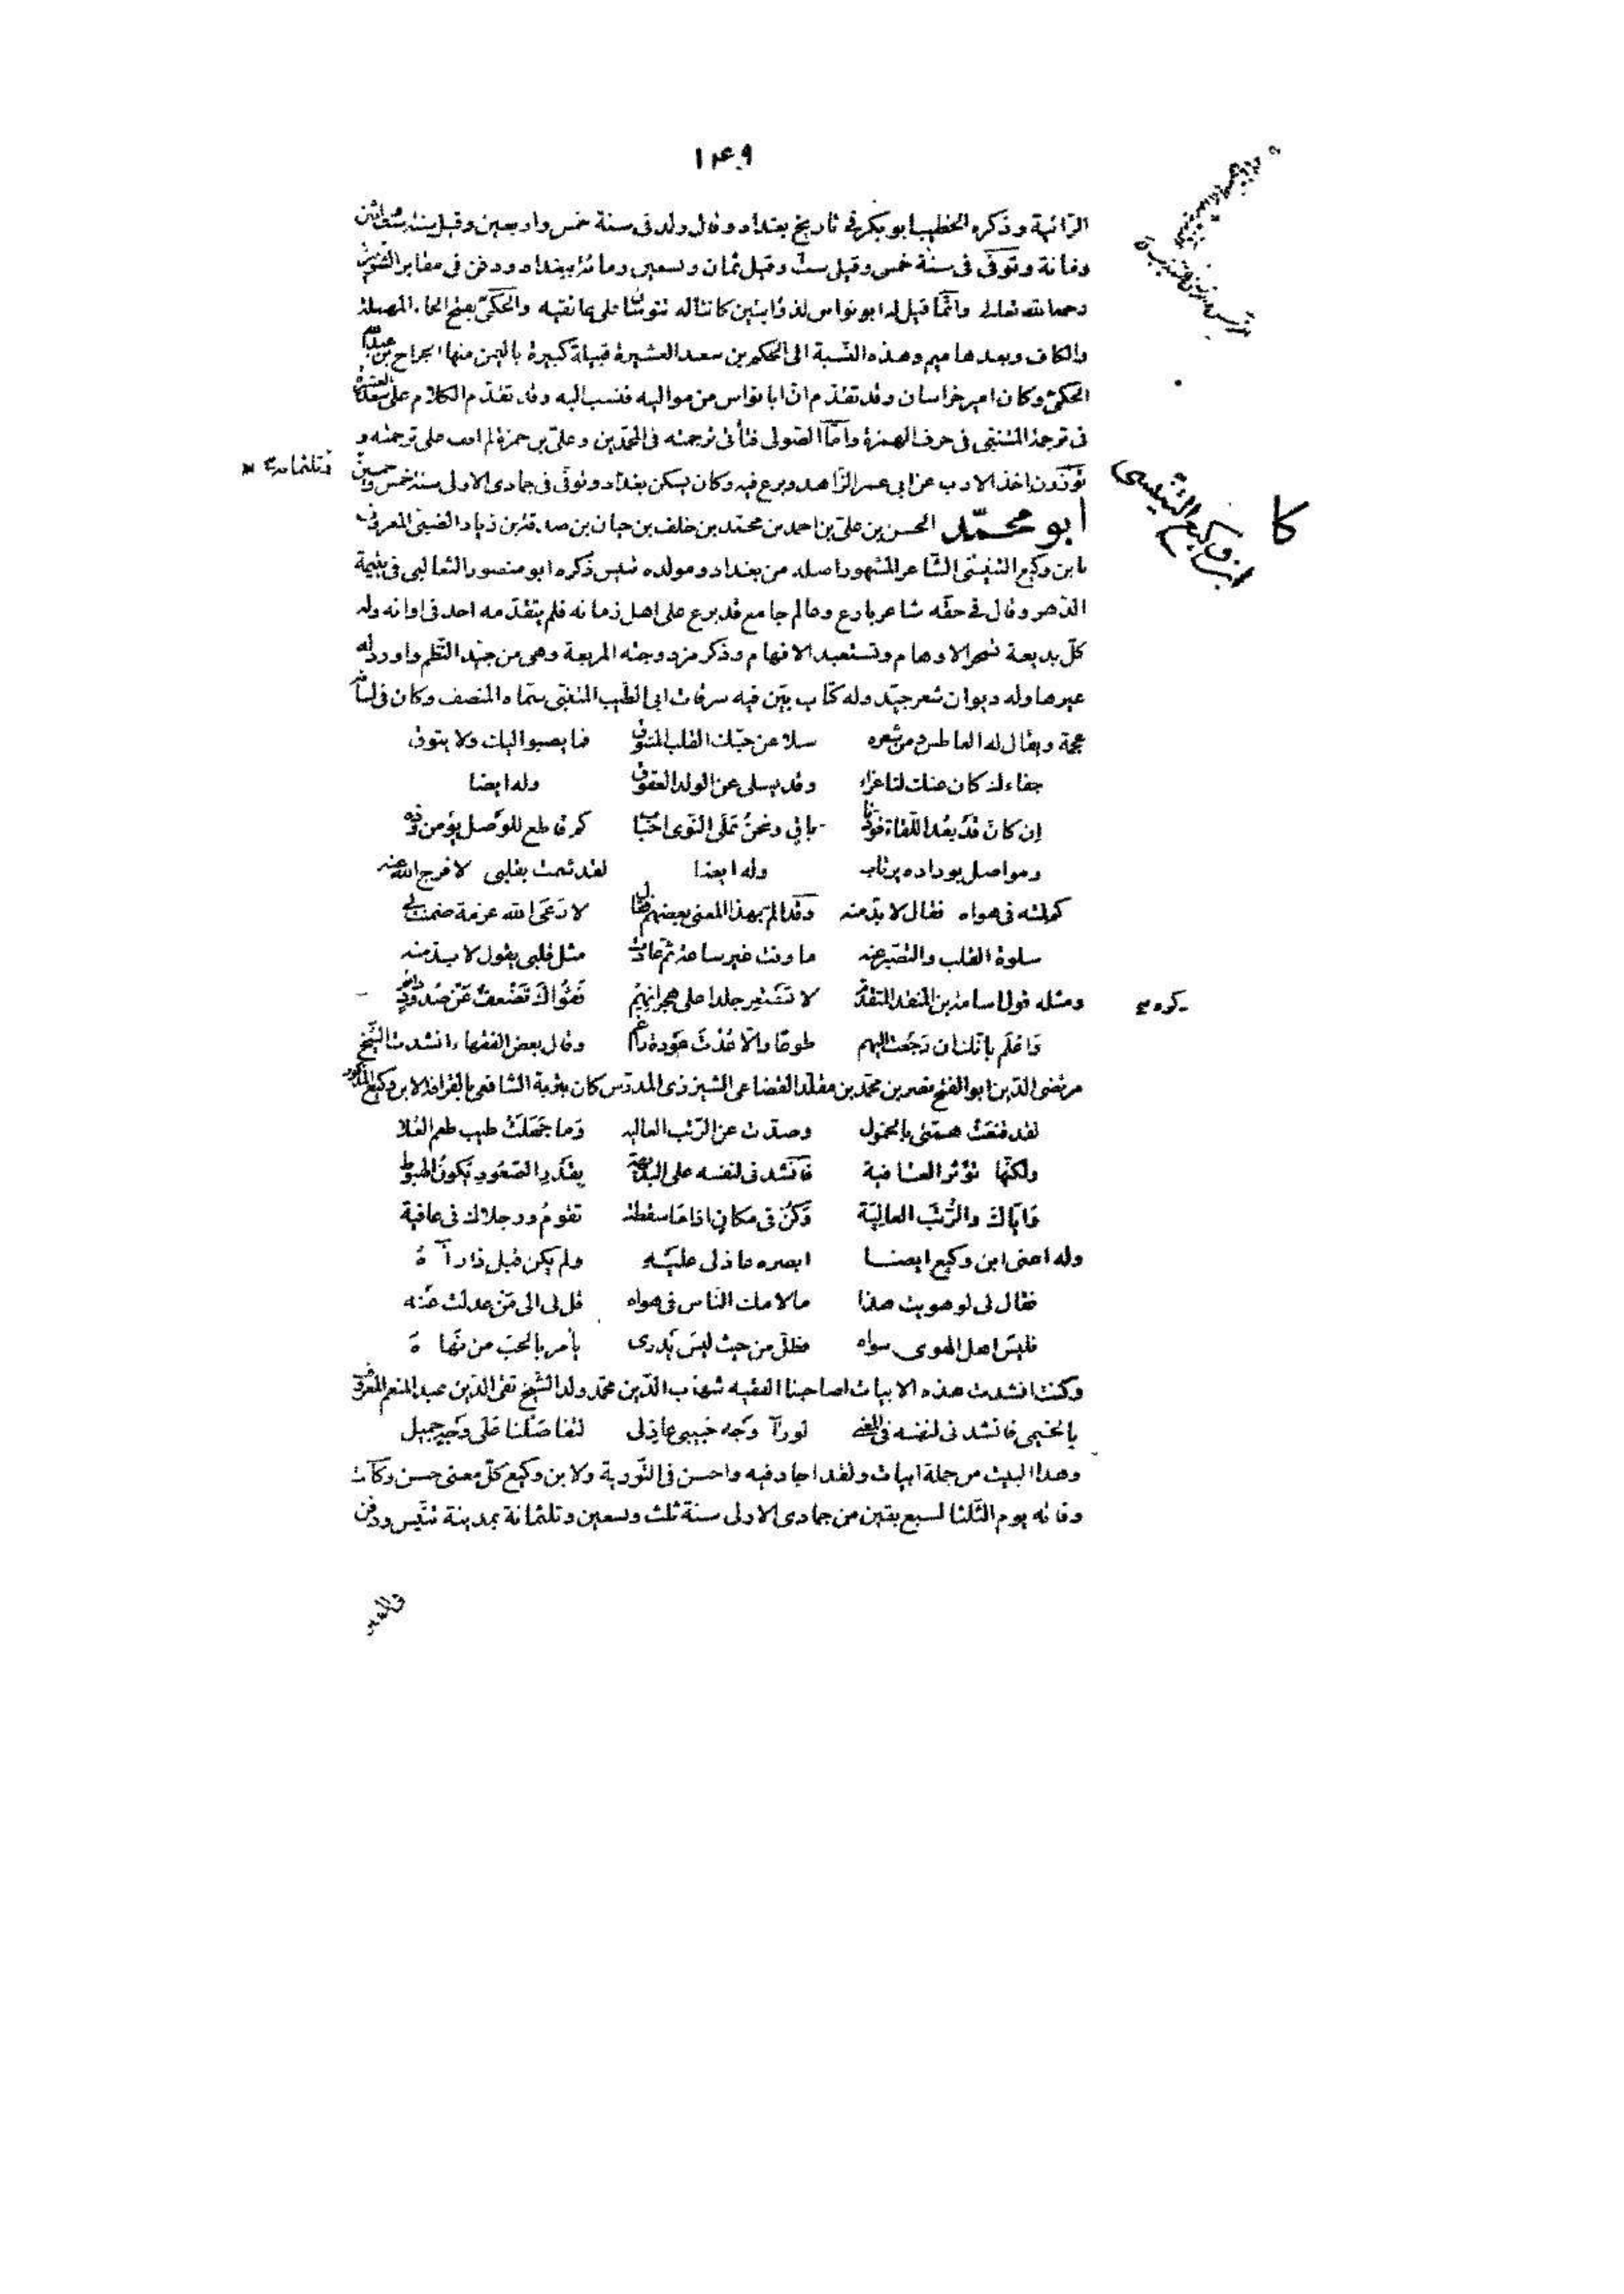 ١٤٩
الرائية وذكره الخطيب ابو بكر فى تاريخ بغداد وقال ولد فى سنة خمس واربعين وقيل سنة ست وثلثين
ومائة وتوفى فى سنة خمس وقيل ست وقيل ثمان وتسعين ومائة ببغداد ودفن فى مقابر الشونيزى
رحمه الله تعالى وانما قيل له ابو نواس لذؤابتين كانتا له تنوسان على عاتقيه والحكمى بفتح الحاء المهملة
والكاف وبعدها ميم وهذه النسبة الى الحكم بن سعد العشيرة قبيلة كبيرة باليمن منها الجراح بن عبد الله
الحكمى وكان امير خراسان وقد تقدم ان ابا نواس من مواليه فنسب اليه وقد تقدم الكلام على سعد العشيرة
فى ترجمة المتنبى فى حرف الهمزة واما الصولى فتأتى ترجمته فى المحمدين وعلى بن حمزة لم اقف على ترجمته و
توزون اخذ الادب عن ابى عمر الزاهد وبرع فيه وكان يسكن بغداد وتوفى فى جمادى الاولى سنة خمس وخمسين
وثلثمائة
ابن وكيع التنيسى
كا
أبو محمّد الحسن بن على بن احمد بن محمد بن خلف بن حيان بن صدقة بن زياد الضبى المعروف
بابن وكيع التنيسى الشاعر المشهور اصله من بغداد ومولده بتنيس ذكره ابو منصور الثعالبى فى يتيمة
الدهر وقال فى حقه شاعر بارع وعالم جامع قد برع على اهل زمانه فلم يتقدمه احد فى اوانه وله
كل بديعة تسحر الاوهام وتستعبد الافهام وذكر مزدوجته المربعة وهى من جيد النظم واورد له
غيرها وله ديوان شعر جيد وله كتاب بين فيه سرقات ابى الطيب المتنبى سماه المنصف وكان فى لسانه
عجمة ويقال له العاطس ومن شعره سلا عن حبك القلب المشوق فما يصبو اليك ولا يتوق
جفاءك كان عنك لنا عزاء وقد يسلى عن الولد العقوق وله ايضا
إن كان قد بعد اللقاء فودنا باقٍ ونحن على النوى احباب كم قاطع للوصل يؤمن وده
ومواصل بوداده يرتاب وله ايضا لقد شمت بقلبى لا فرج الله عنه
كم لمته فى هواه فقال لا بد منه وقد الم بهذا المعنى بعضهم فقال لا رعى الله عزمة ضمنت لى
سلوة القلب والتصبر عنه ما وفت غير ساعة ثم عادت مثل قلبى يقول لا بد منه
ومثله قول اسامة بن المنقذ المتقدم ذكره لا تستعر جلدا على هجرانهم فقواك تضعف عن صدود دائم
واعلم بانك ان رجعت اليهم طوعا والا عدت عودة راغم وقال بعض الفقهاء انشدت الشيخ
مرتضى الدين ابو الفتح نصر بن محمد بن مقلد القضاعى الشيزرى المدرس كان بتربة الشافعى بالقرافة لابن وكيع المذكور
لقد قنعت همتى بالخمول وصدت عن الرتب العالية وما جهلت طيب طعم العلا
ولكنها تؤثر العافية فانشدنى لنفسه على البديهة بقدر الصعود يكون الهبوط
فاياك والرتب العالية وكن فى مكان اذا ما سقطت تقوم ورجلاك فى عافية
وله اعنى ابن وكيع ايضا ابصره عاذلى عليه ولم يكن قبل ذا رآه
فقال لى لو هويت هذا ما لامك الناس فى هواه قل لى الى من عدلت عنه
فليس اهل الهوى سواه فظل من حيث ليس يدرى يأمر بالحب من نهاه
وكنت انشدت هذه الابيات لصاحبنا الفقيه شهاب الدين محمد ولد الشيخ تقى الدين عبد المنعم المعروف
بالخيمى فانشدنى لنفسه فى المعنى لو رآ وجه حبيبى عاذلى لتفاصلنا على وجه جميل
وهذا البيت من جملة ابيات ولقد اجاد فيه واحسن فى التورية ولابن وكيع كل معنى حسن وكانت
وفاته يوم الثلثا لسبع بقين من جمادى الاولى سنة ثلث وتسعين وثلثمائة بمدينة تنيس ودفن